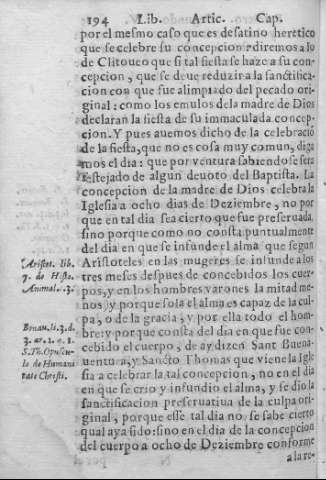 194 Lib. Artic. Cap.
por el mesmo caso que es desatino heretico
que se celebre su concepcion rediremos a lo
de Clitoueo que si tal fiesta se haze a su con-
cepcion, que se deue reduzir a la sanctifica-
cion con que fue alimpiado del pecado ori-
ginal: como los emulos dela madre de Dios
declaran la fiesta de su immaculada concep-
cion. Y pues auemos dicho de la celebració
de la fiesta, que no es cosa muy comun, diga
mos el dia: que por ventura sabiendo se sera
festejado de algun deuoto del Baptista. La
concepcion de la madre de Dios celebra la
Iglesia a ocho dias de Deziembre, no por
que en tal dia sea cierto que fue preseruada,
sino porque como no consta puntualmente
del dia en que se infunde el alma que segun
Aristoteles en las mugeres se infunde a los
tres meses despues de concebidos los cuer-
pos, y en los hombres varones la mitad me-
nos, y porque sola el alma es capaz de la cul-
pa, o de la gracia, y por ella todo el hom-
bre: y porque consta del dia en que fue con-
cebido el cuerpo, de ay dizen Sant Buena-
uentura, y Sancto Thomas que viene la Igle
sia a celebrar la tal concepcion, no en el dia
en que se crio y infundio el alma, y se dio la
sanctificacion preseruatiua de la culpa ori-
ginal, porque esse tal dia no se sabe cierto
qual aya sido: sino en el dia de la concepcion
del cuerpo a ocho de Deziembre conforme
a la re-
Aristot. lib.
7. de Histo.
Animal. .3.
Bonau. li. 3. d.
3. ar. 1. q. 1.
S. Th. Opuscu-
lo de Humani
tate Christi.